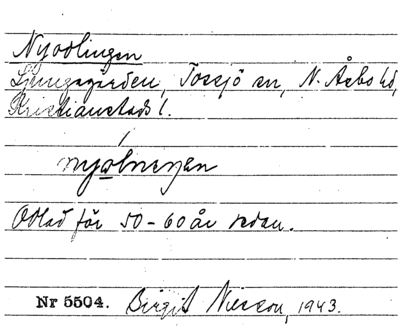 Nyodlingen
Ljungagården, Tossjö sn, N. Åsbo hd,
Kristianstads l.
Odlad för 50-60 år sedan.
Nr 5504. Birgit Nilsson, 1943.